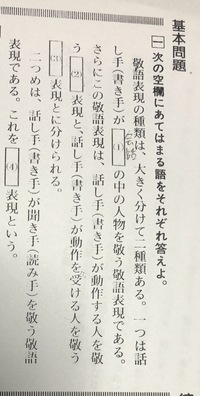 基本問題
一 次の空欄にあてはまる語をそれぞれ答えよ。
敬語表現の種類は、大きく分けて二種類ある。一つは話
し手(書き手)が(1)の中の人物を敬う敬語表現である。
さらにこの敬語表現は、話し手(書き手)が動作する人を敬
う(2)表現と、話し手(書き手)が動作を受ける人を敬う
(3)表現とに分けられる。
二つめは、話し手(書き手)が聞き手(読み手)を敬う敬語
表現である。これを(4)表現という。